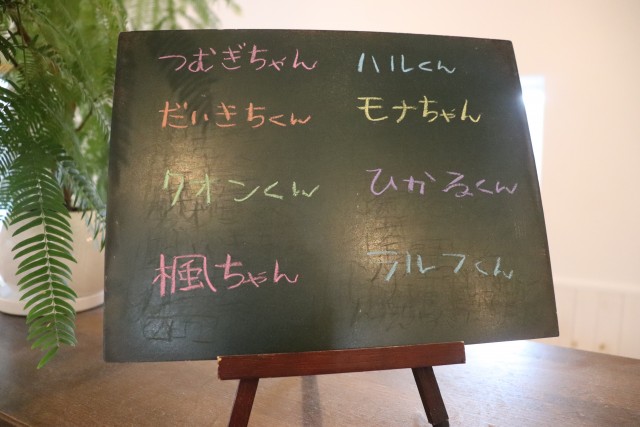 つむぎちゃん
だいきちくん
クオンくん
楓ちゃん
ハルくん
モナちゃん
ひかるくん
ラルフくん